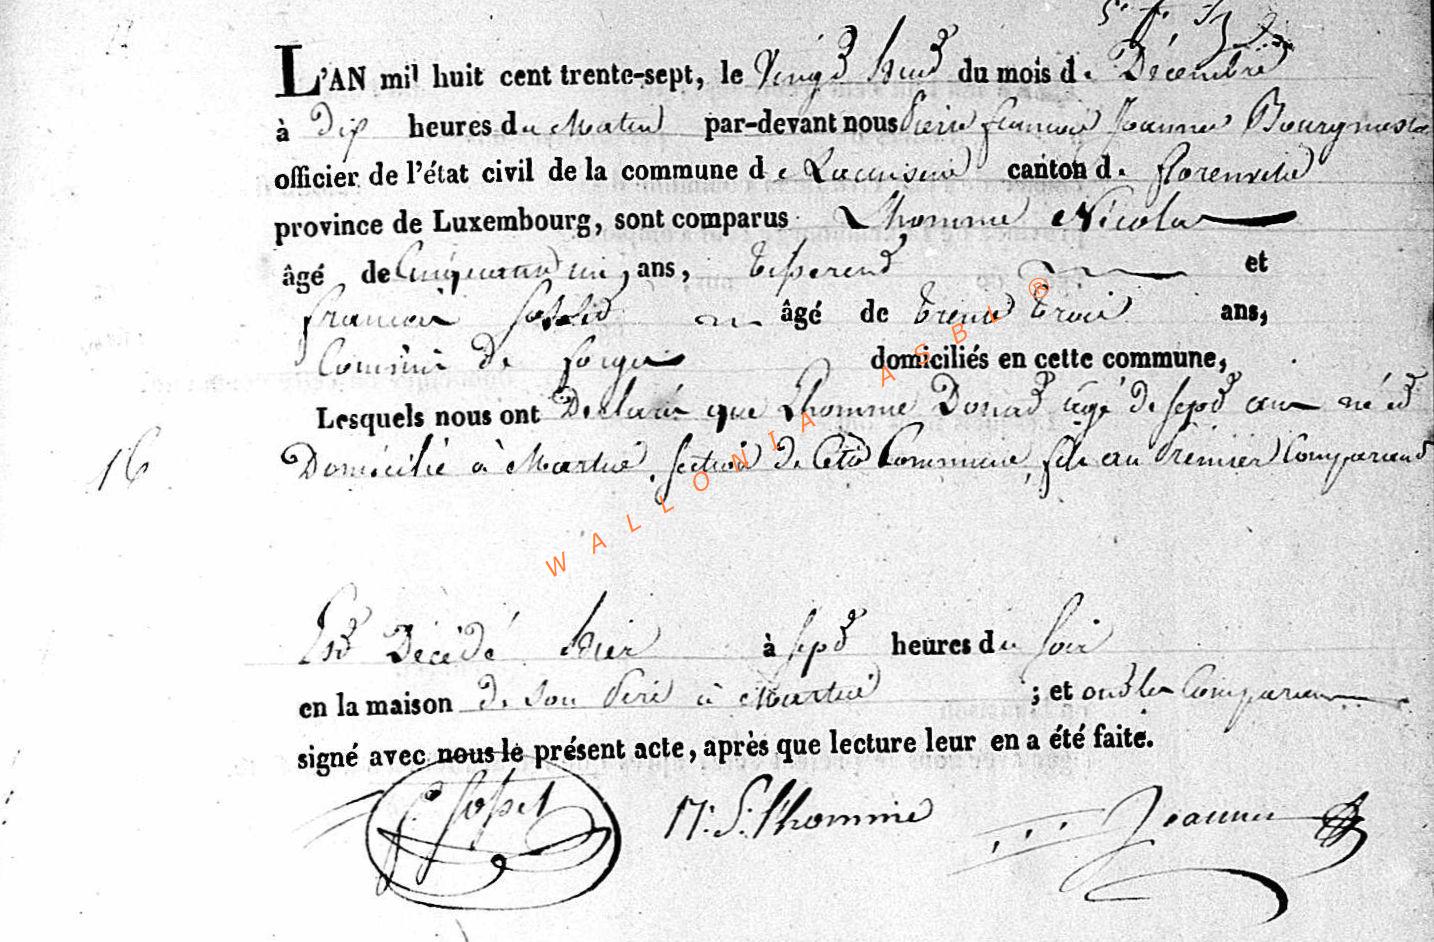 L'AN mil huit cent trente-sept, le Vingt huit du mois de Décembre
à Dix heures du Matin par-devant nous Pierre françois Jeanne Bourgmestre
officier de l'état civil de la commune de Lacuisine canton de florenville
province de Luxembourg, sont comparus Lhomme Nicolas
âgé de Cinquante un ans, tisserend et
françois âgé de trente trois ans,
Commis de forges domiciliés en cette commune,
Lesquels nous ont Déclaré que Lhomme Donat âgé de sept ans né et
16 Domicilié à Martué, section de Cette Commune, fils au Premier Comparant
Est Décédé hier à sept heures du soir
en la maison de son Père à Martué ; et ont les Comparans
signé avec nous le présent acte, après que lecture leur en a été faite.
N. J. Lhomme
WALLONIA ASBL ®